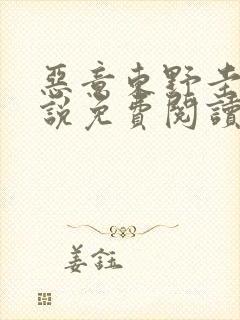 惡意東野圭
說免費閱讀
姜鈺